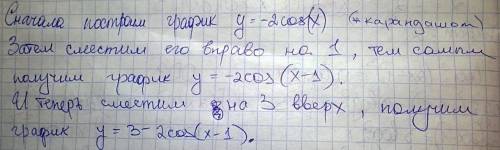 Сначала построим график y=-2cos(x) (карандашом)
Затем сместим его вправо на 1, тем самым
получим график y=-2cos(x-1).
И теперь сместим на 3 вверх, получим
график y=3-2cos(x-1).